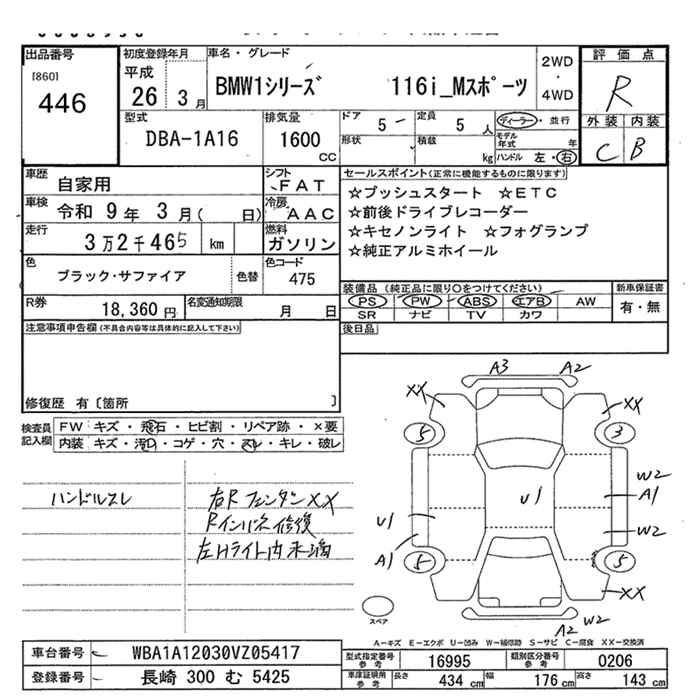 出品番号
[860]
446
初度登録年月
平成
26 3月
車名・グレード
BMW1シリーズ 116i_Mスポーツ
2WD
4WD
評価点
R
外装 内装
C B
型式
DBA-1A16
排気量
1600
CC
ドア
5
形状
定員
5 人
積載
kg
ディーラー・並行
モデル年式 年
ハンドル 左・右
車歴
自家用
シフト
FAT
車検
令和 9年 3月( 日)
冷房
AAC
走行
3万2千465 km
燃料
ガソリン
色
ブラック・サファイア
色替
色コード
475
R券
18,360 円
名変通知期限
月 日
セールスポイント(正常に機能するものに限ります)
☆プッシュスタート ☆ETC
☆前後ドライブレコーダー
☆キセノンライト ☆フォグランプ
☆純正アルミホイール
装備品 (純正品に限り○をつけてください)
PS PW ABS エアB AW
SR ナビ TV カワ
新車保証書
有・無
後日品
注意事項申告欄(不具合内容等は具体的に記入して下さい)
修復歴 有〔箇所 〕
検査員
記入欄
FW キズ・飛石・ヒビ割・リペア跡・×要
内装 キズ・汚れ・コゲ・穴・スレ・キレ・破レ
ハンドルスレ
右Rフェンダー XX
Rインパネ修復
左Hライト内 水滴
A3 A2
XX XX
5 3
W2
A1
U1
U1
W2
A1
5 5
XX
W2
A2
スペア
A-キズ E-エクボ U-凹み W-補修跡 S-サビ C-腐食 XX-交換済
車台番号
WBA1A12030VZ05417
登録番号
長崎 300 む 5425
型式指定番号
参考
16995
類別区分番号
参考
0206
車庫証明用
参考
長さ 434 cm 幅 176 cm 高さ 143 cm